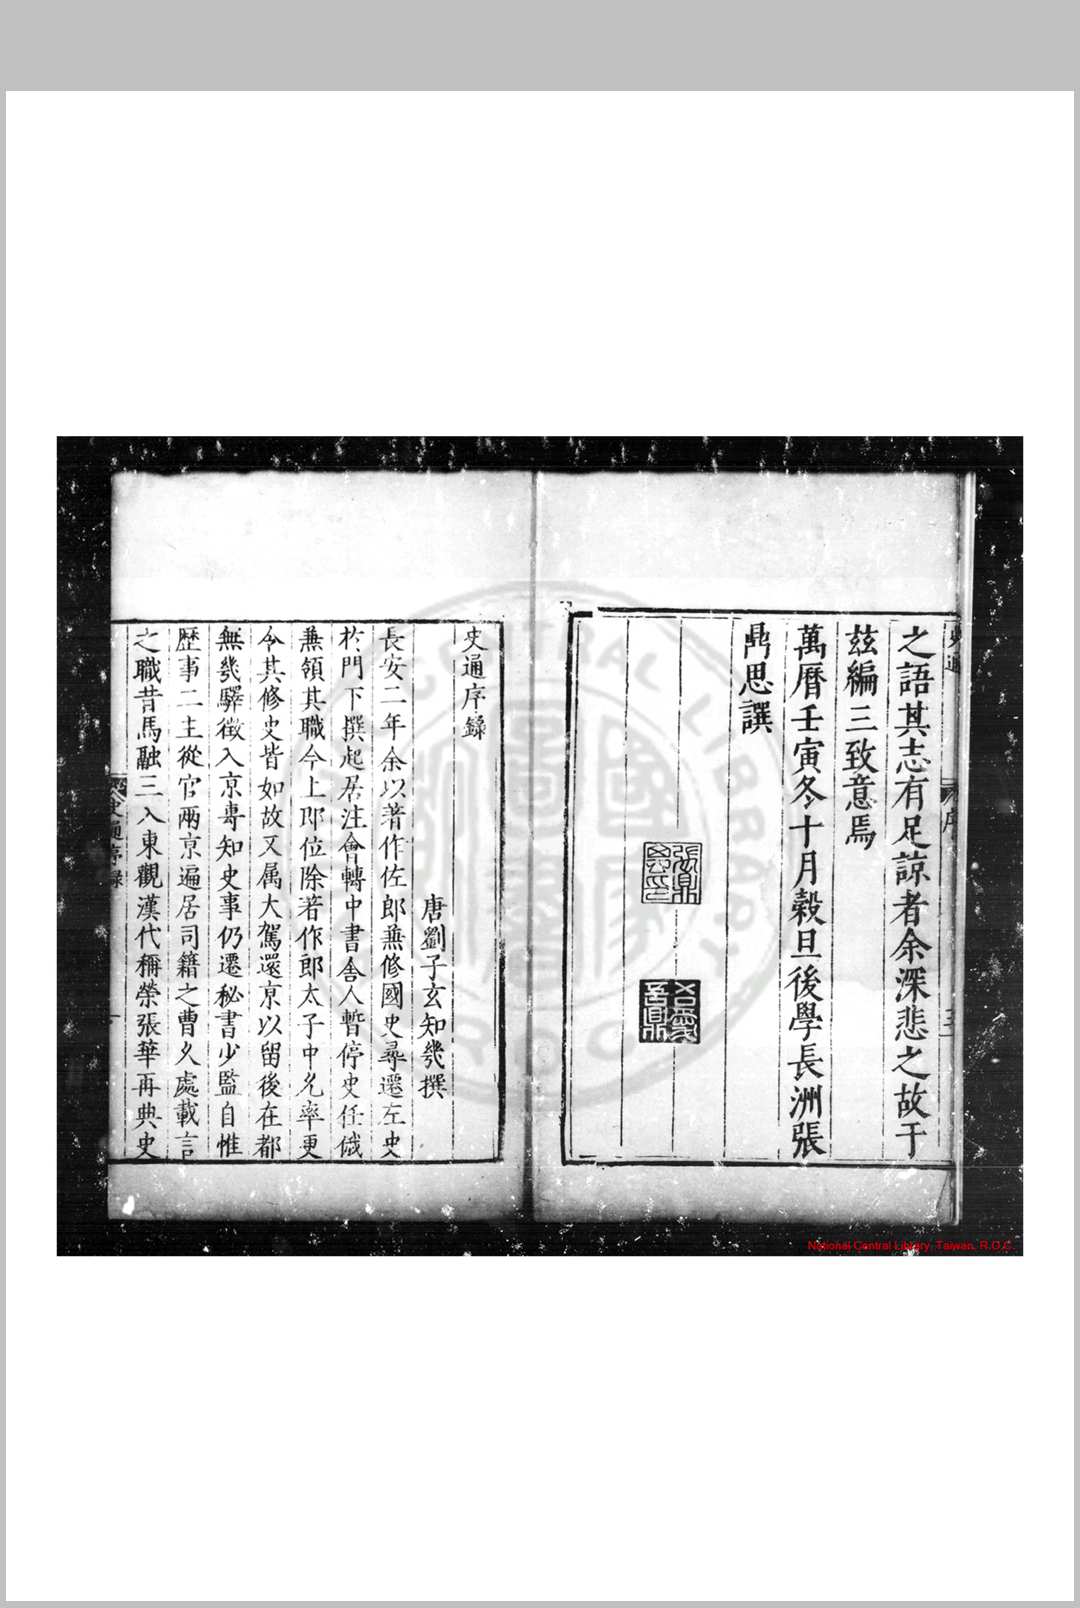 之語其志有足諒者余深悲之故于
玆編三致意焉
萬曆壬寅冬十月榖旦後學長洲張
鼎思譔
史通序錄
唐劉子玄知幾撰
長安二年余以著作佐郎兼修國史尋遷左史
於門下撰起居注會轉中書舍人暫停史任俄
兼領其職今上即位除著作郎太子中允率更
令其修史皆如故又属大駕還京以留後在都
無幾驛徵入京專知史事仍遷秘書少監自惟
歷事二主從官兩京遍居司籍之曹久處載言
之職昔馬融三入東觀漢代稱榮張華再典史
史通序錄
National Central Library, Taiwan, R.O.C.